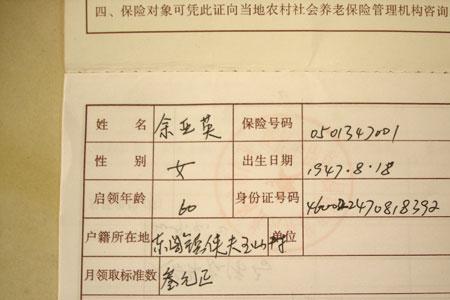 四、保险对象可凭此证向当地农村社会养老保险管理机构咨询
姓 名 余亚英 保险号码 0501347001
性 别 女 出生日期 1947.8.18
启领年龄 60 身份证号码
户籍所在地 单位
月领取标准数 叁元正